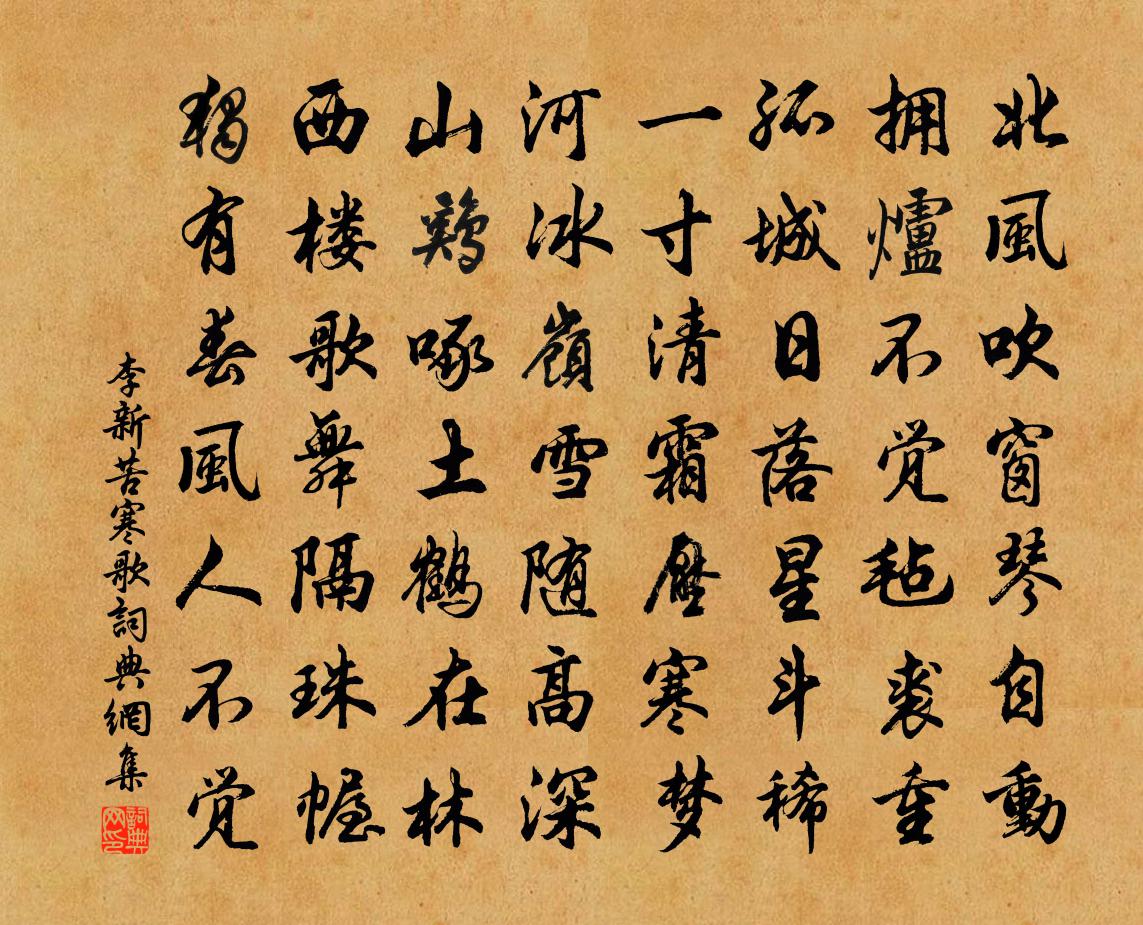 北風吹窗琴自動
拥爐不觉毡裘重
孤城日落星斗稀
一寸清霜壓寒梦
河冰嶺雪随高深
山鷄啄土鶴在林
西楼歌舞隔珠幄
獨有春風人不觉
李新苦寒歌詞典網集
詞典网印